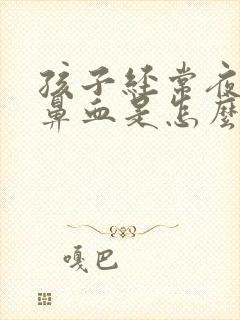 孩子经常夜
鼻血是怎麼
嘎巴